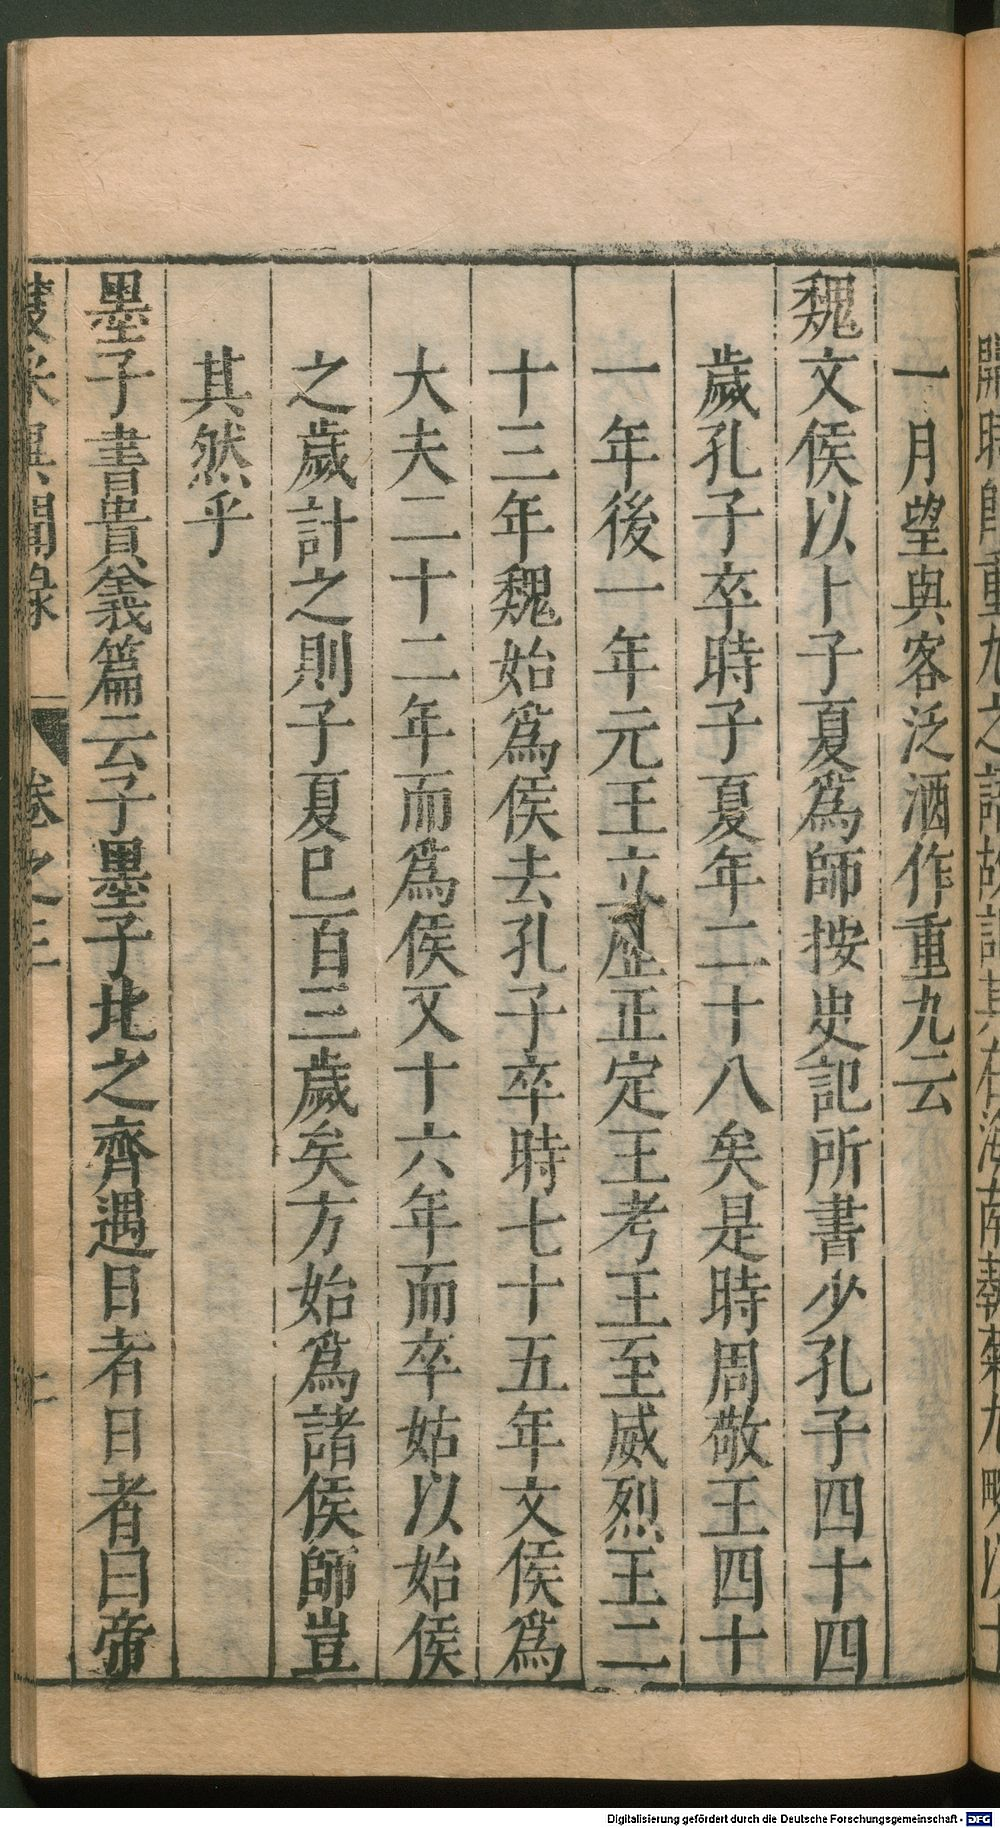 一月望與客泛酒作重九云
魏文侯以卜子夏爲師按史記所書少孔子四十四
歲孔子卒時子夏年二十八矣是時周敬王四十
一年後一年元王立歴正定王考王至威烈王二
十三年魏始爲侯去孔子卒時七十五年文侯爲
大夫二十二年而爲侯又十六年而卒姑以始侯
之歲計之則子夏已百三歲矣方始爲諸侯師豈
其然乎
墨子書貴義篇云子墨子北之齊遇日者日者曰帝
卷之三
二
Digitalisierung gefördert durch die Deutsche Forschungsgemeinschaft - DFG